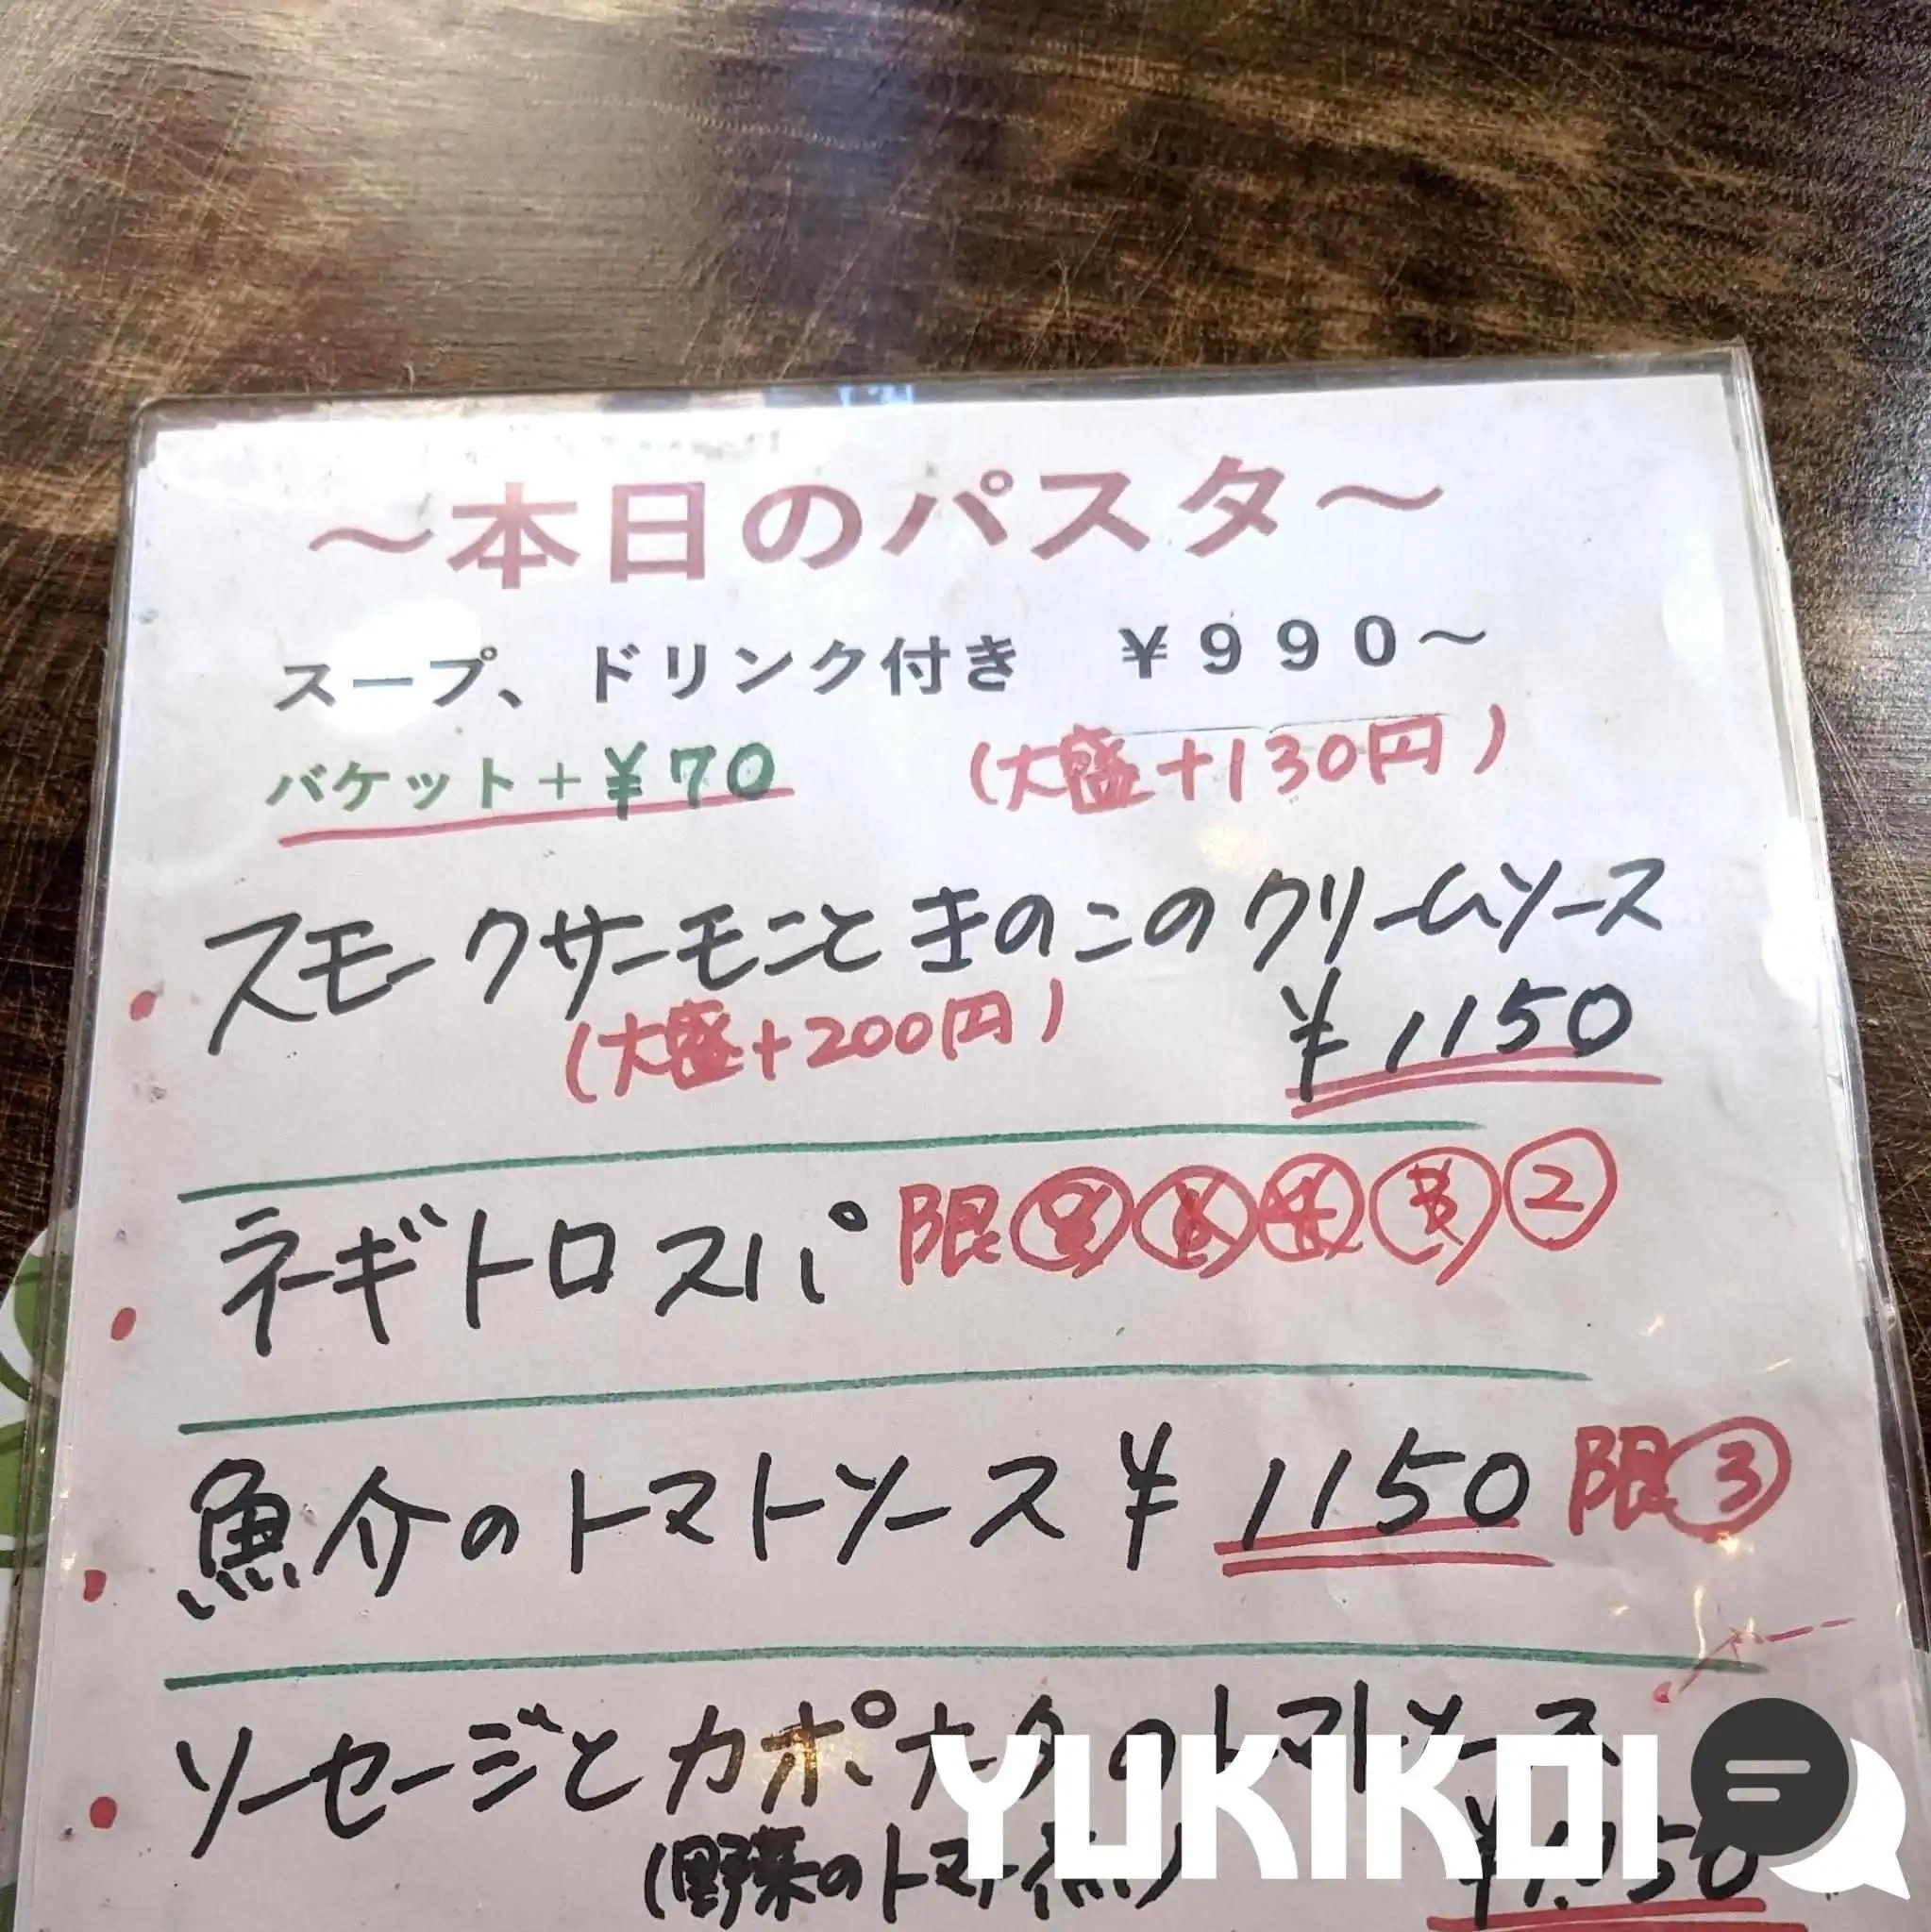 ～本日のパスタ～
スープ、ドリンク付き　￥９９０～
バケット＋￥70　(大盛+130円)
・スモークサーモンときのこのクリームソース
(大盛+200円)　¥1150
・ネギトロスパ 限 ②
・魚介のトマトソース ¥1150 限③
・ソーセージとカポナータのトマトソース
(野菜のトマト煮)
YUKIKOI